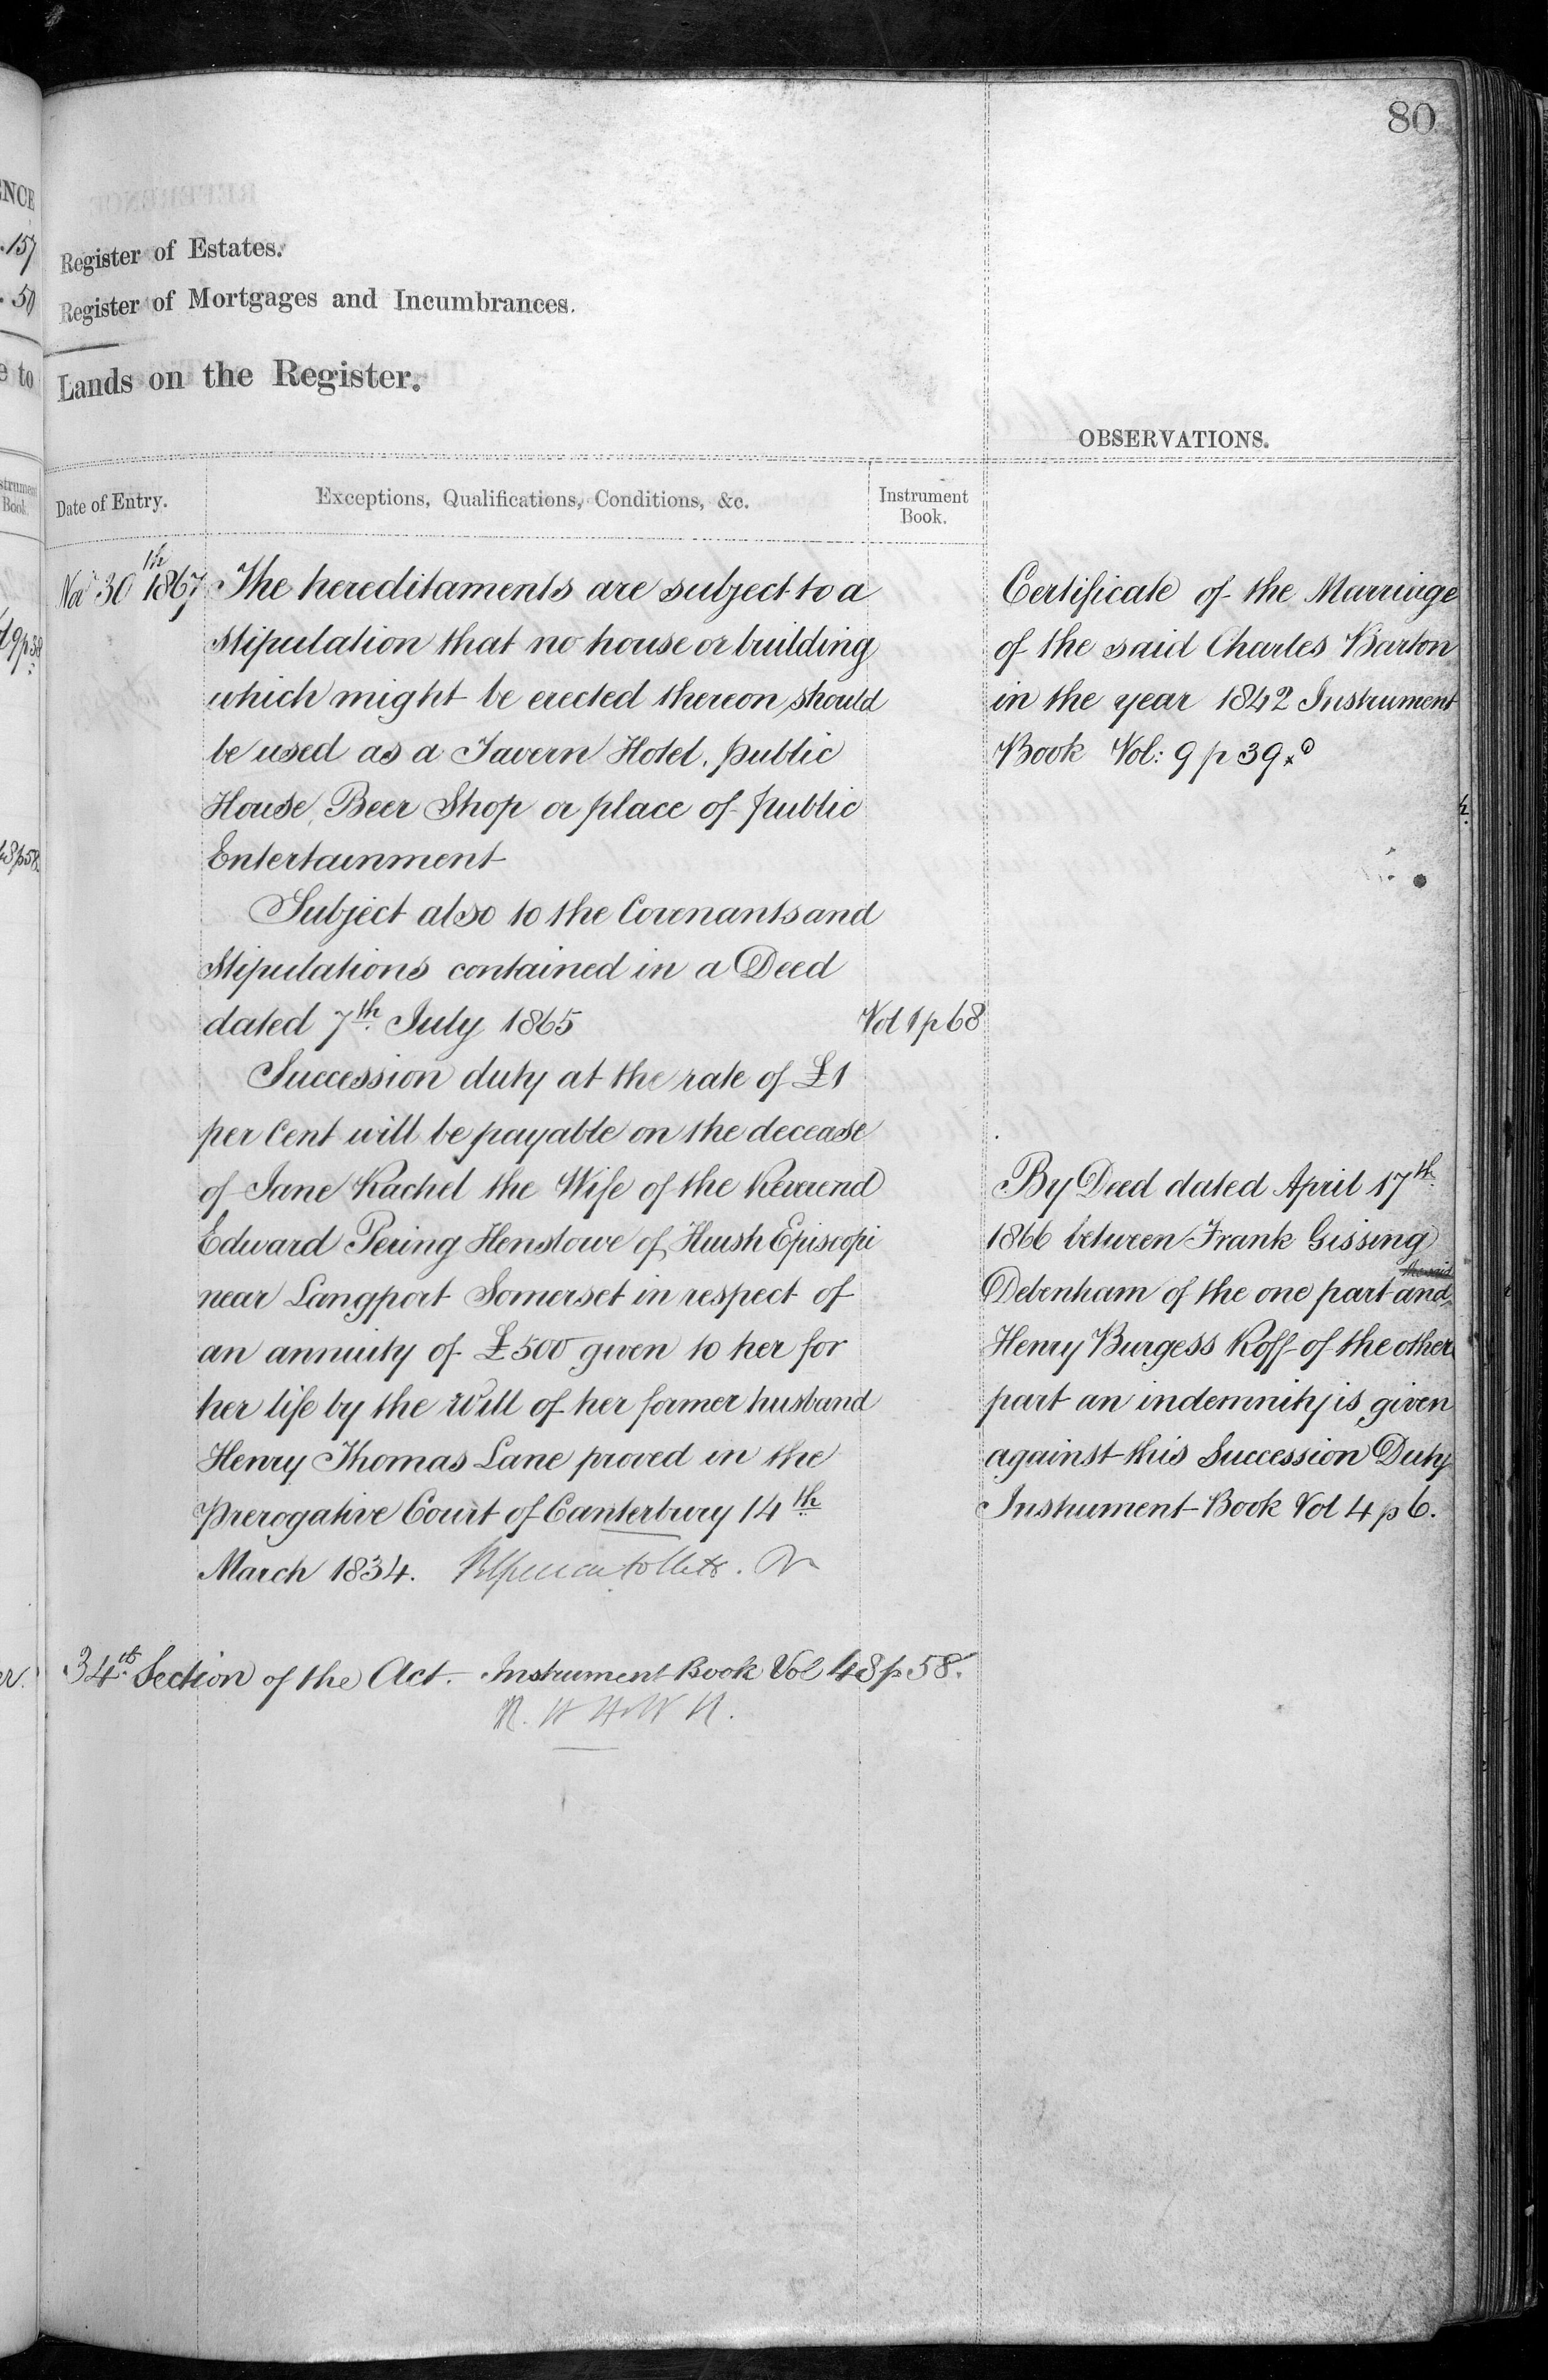 80
Register of Estates.
Register of Mortgages and Incumbrances.
Lands on the Register.
OBSERVATIONS.
Date of Entry.
Exceptions, Qualifications, Conditions, &c.
Instrument
Book.
Novr 30th 1867
The hereditaments are subject to a
stipulation that no house or building
which might be erected thereon should
be used as a Tavern Hotel, public
House, Beer Shop or place of public
Entertainment
Subject also to the Covenants and
Stipulations contained in a Deed
dated 7th July 1865
Vol 1 p 68
Succession duty at the rate of £1
per Cent will be payable on the decease
of Jane Rachel the Wife of the Reverend
Edward Pering Henslowe of Huish Episcopi
near Langport Somerset in respect of
an annuity of £500 given to her for
her life by the Will of her former husband
Henry Thomas Lane proved in the
Prerogative Court of Canterbury 14th
March 1834.
34th Section of the Act. Instrument Book Vol 48 p 58.
Certificate of the Marriage
of the said Charles Barton
in the year 1842 Instrument
Book Vol: 9 p 39.
By Deed dated April 17th
1866 between Frank Gissing
Debenham of the one part and
the said
Henry Burgess Roff of the other
part an indemnity is given
against this Succession Duty
Instrument Book Vol 4 p 6.
ENCE
.157
. 50
e to
Book.
48 p 58.